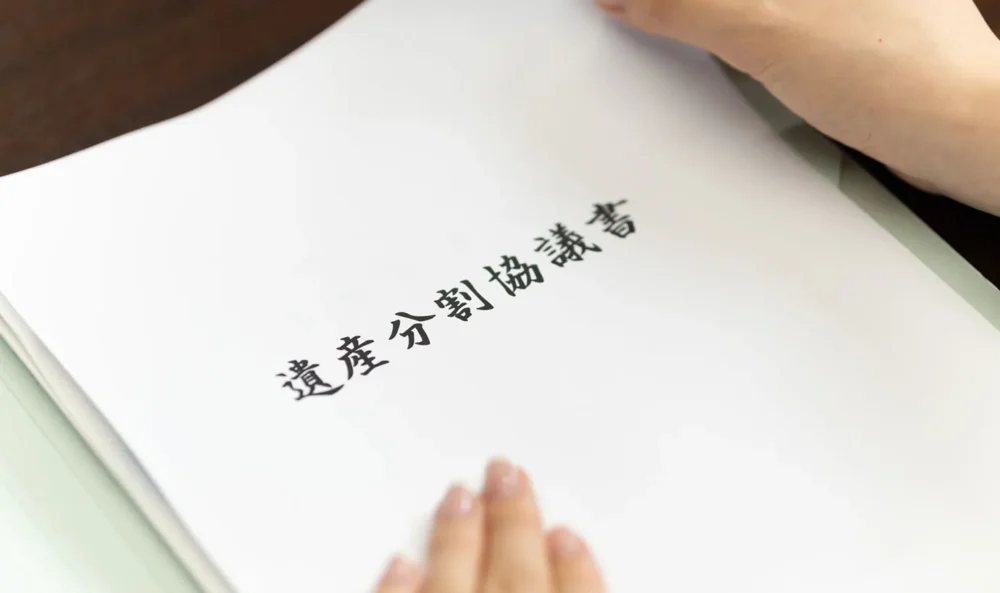 遺産分割協議書